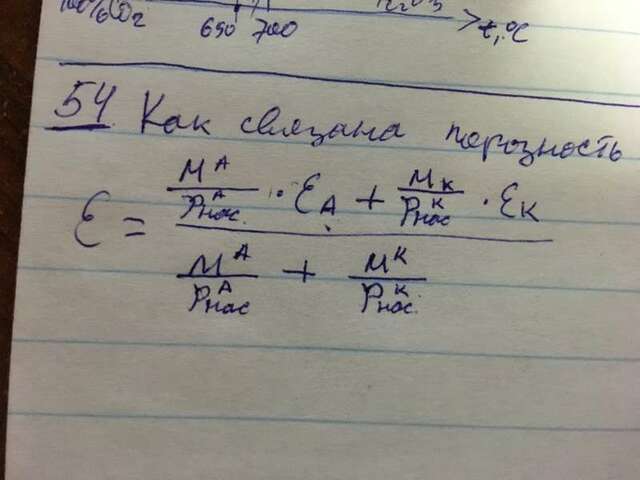 100% CO2
650 700 t, °C
54. Как связана порозность
ε = (M^A / ρ^A нас. · ε_A + M_K / ρ^K нас · ε_K) / (M^A / ρ^A нас + M^K / ρ^K нас.)